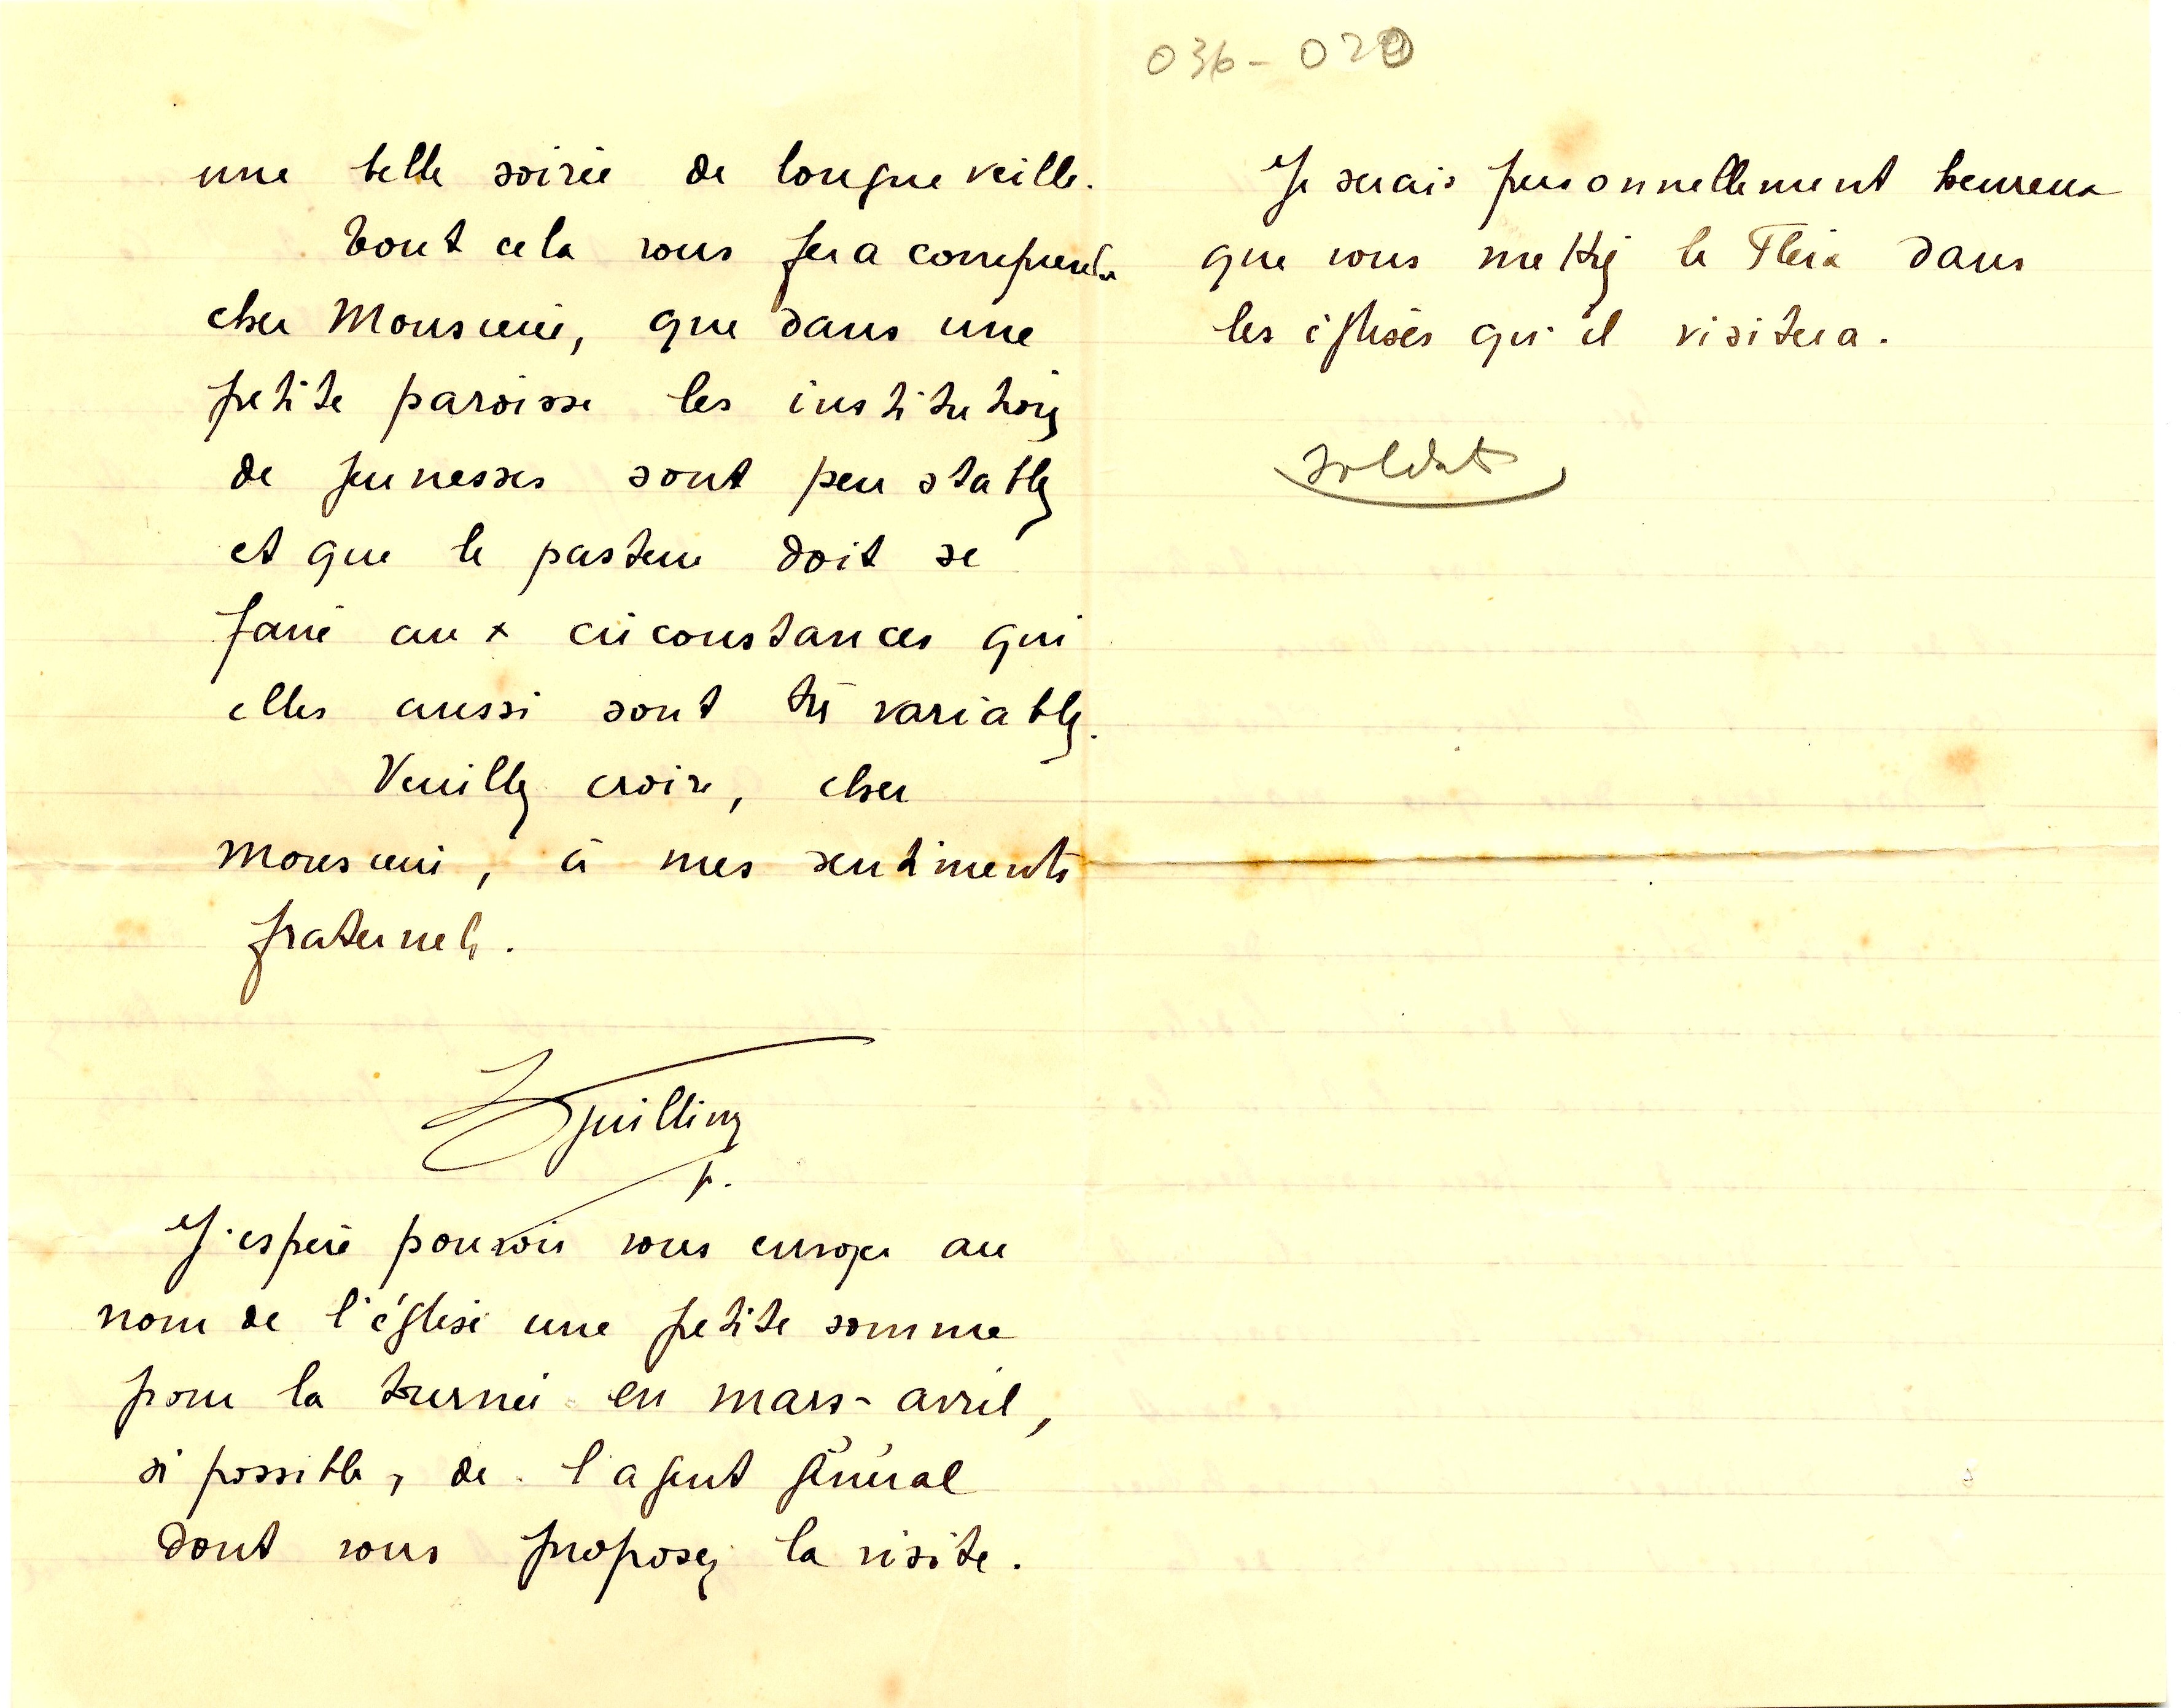 036-020
une belle soirée de longue veille.
Tout cela vous fera comprendre
cher Monsieur, que dans une
petite paroisse les institutions
de jeunesses sont peu stables
et que le pasteur doit se
faire aux circonstances qui
elles aussi sont très variables.
Veuillez croire, cher
Monsieur, à mes sentiments
fraternels.
p.
J'espère pouvoir vous envoyer au
nom de l'église une petite somme
pour la tournée en mars-avril,
si possible, de l'agent général
dont vous proposez la visite.
Je serais personnellement heureux
que vous mettiez le Fleix dans
les églises qu'il visitera.
soldat